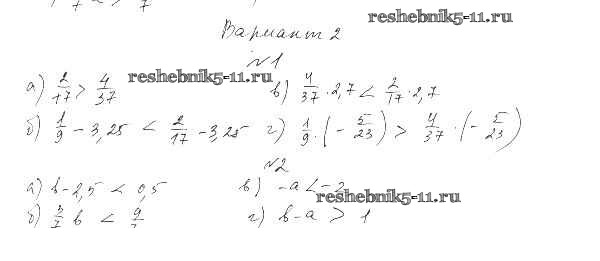 reshebnik5-11.ru
Вариант 2
№1
а) 2/17 > 4/37
reshebnik5-11.ru
в) 4/37 · 2,7 < 2/17 · 2,7
б) 1/9 - 3,25 < 2/17 - 3,25
г) 1/9 · (- 5/23) > 4/37 · (- 5/23)
№2
а) b - 2,5 < 0,5
в) -a < -2
reshebnik5-11.ru
б) b <
г) b - a > 1